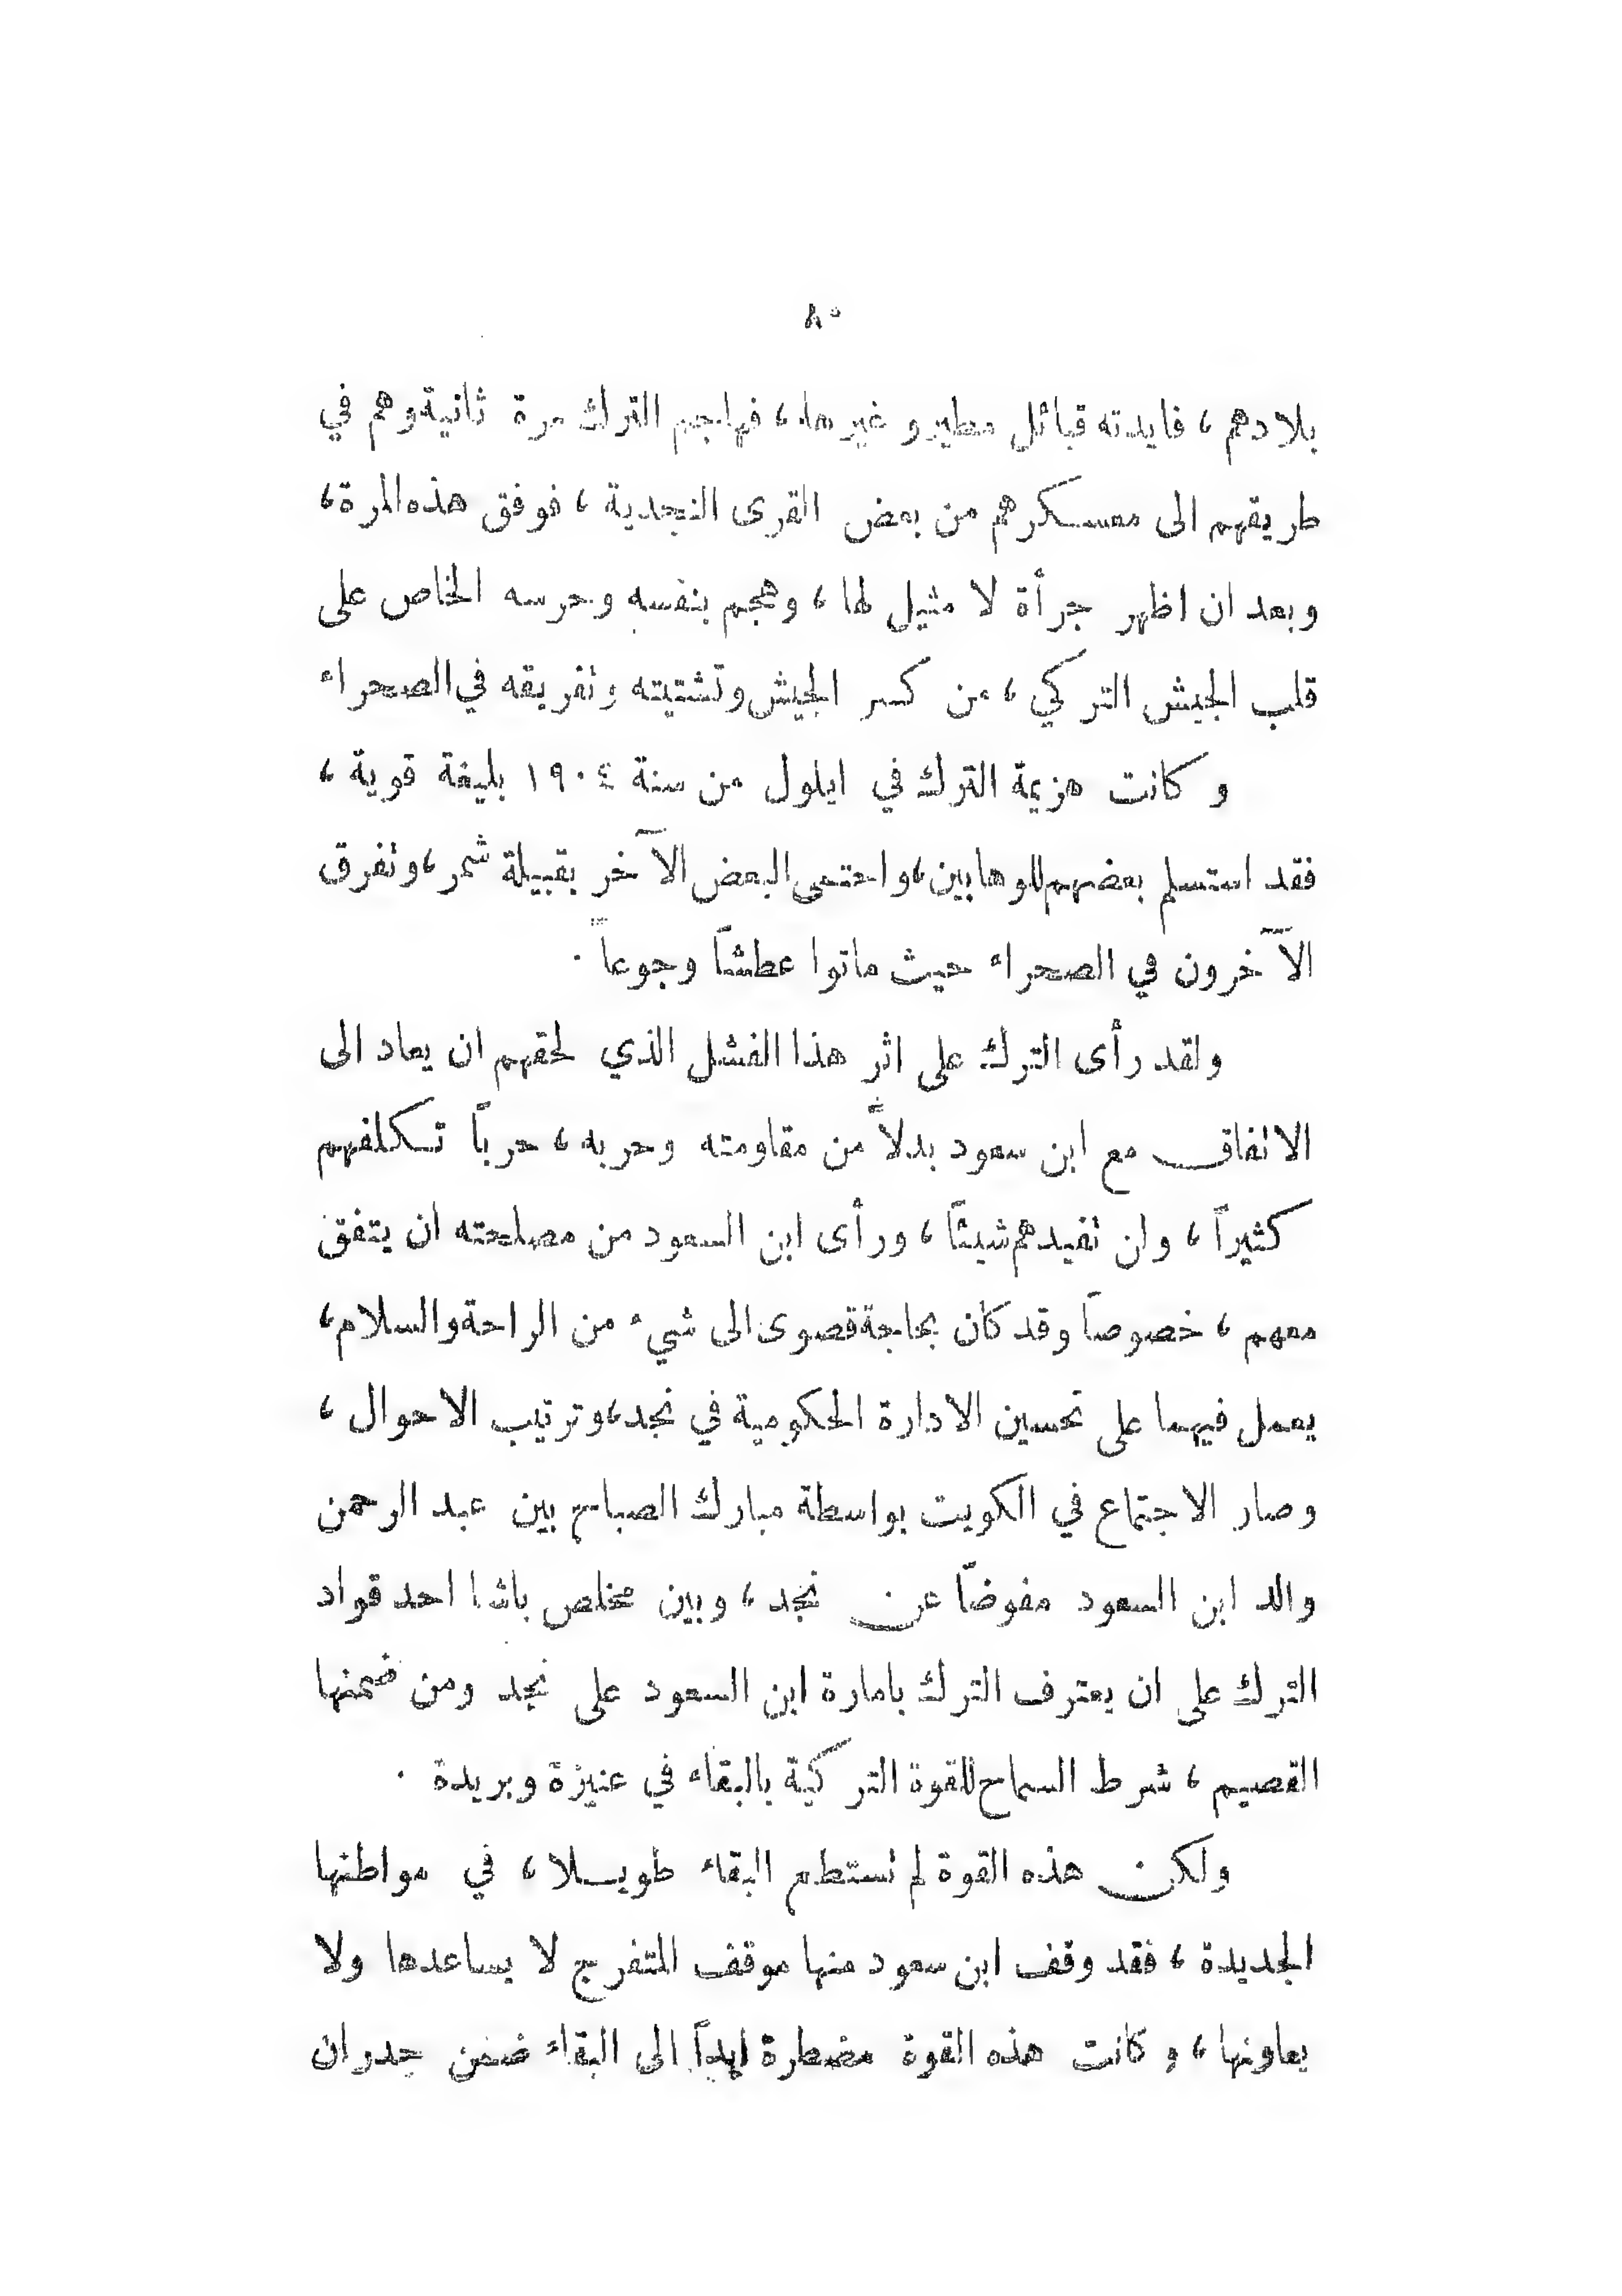 ٨٠
بلادهم ، فايدته قبائل مطير و غيرها ، فهاجم الترك مرة ثانية وهم في
طريقهم الى معسكرهم من بعض القرى النجدية ، فوفق هذه المرة ،
وبعد ان اظهر جرأة لا مثيل لها ، وهجم بنفسه وحرسه الخاص على
قلب الجيش التركي ، من كسر الجيش وتشتيته وتفريقه في الصحراء
وكانت هزيمة الترك في ايلول من سنة ١٩٠٤ بليغة قوية ،
فقد استسلم بعضهم للوهابين ، واحتمى البعض الآخر بقبيلة شمر ، وتفرق
الآخرون في الصحراء حيث ماتوا عطشاً وجوعاً .
ولقد رأى الترك على اثر هذا الفشل الذي لحقهم ان يعاد الى
الاتفاق مع ابن سعود بدلاً من مقاومته وحربه ، حرباً تكلفهم
كثيراً ، ولن تفيدهم شيئاً ، ورأى ابن السعود من مصلحته ان يتفق
معهم ، خصوصاً وقد كان بحاجة قصوى الى شيء من الراحة والسلام ،
يعمل فيهما على تحسين الادارة الحكومية في نجد ، وترتيب الاحوال ،
وصار الاجتماع في الكويت بواسطة مبارك الصباح بين عبد الرحمن
والد ابن السعود مفوضاً عن نجد ، وبين مخلص باشا احد قواد
الترك على ان يعترف الترك بامارة ابن السعود على نجد ومن ضمنها
القصيم ، شرط السماح للقوة التركية بالبقاء في عنيزة وبريدة .
ولكن هذه القوة لم تستطع البقاء طويلا ، في مواطنها
الجديدة ، فقد وقف ابن سعود منها موقف المتفرج لا يساعدها ولا
يعاونها ، وكانت هذه القوة مضطرة ابداً الى البقاء ضمن جدران